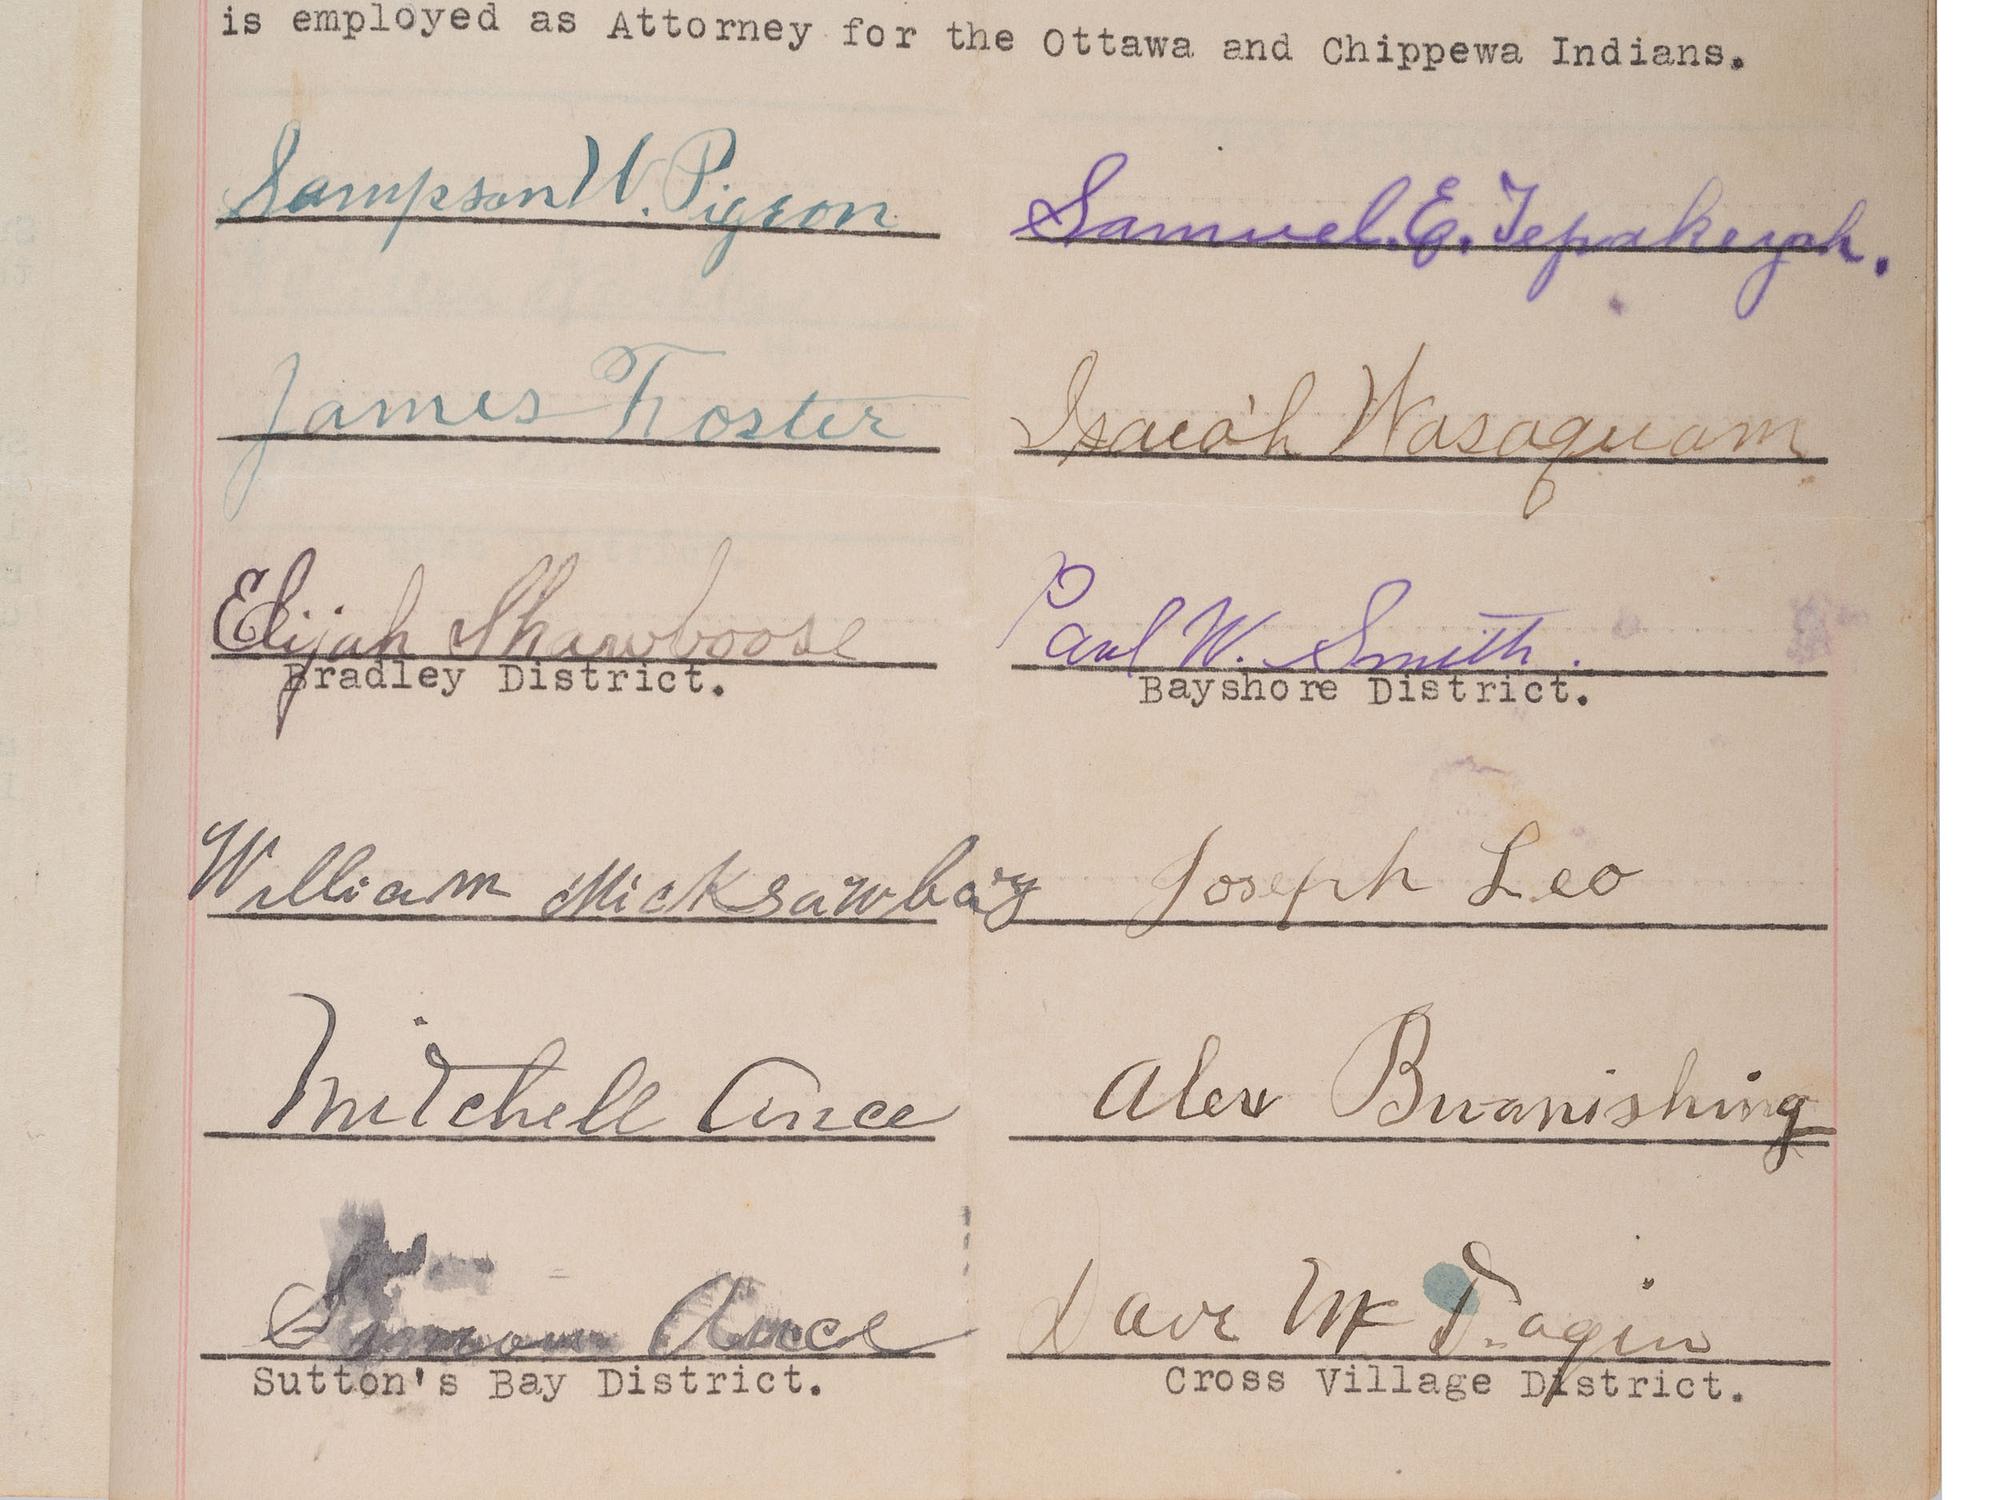 is employed as Attorney for the Ottawa and Chippewa Indians.
Sampson W. Pigeon
Samuel. E. Tepakeyah.
James Foster
Isaiah Wasaquam
Elijah Shawboose
Paul W. Smith.
Bradley District.
Bayshore District.
William Micksawbay
Joseph Leo
Mitchell Ance
Alex Bwanishing
Simon Ance
Dave
Sutton's Bay District.
Cross Village District.